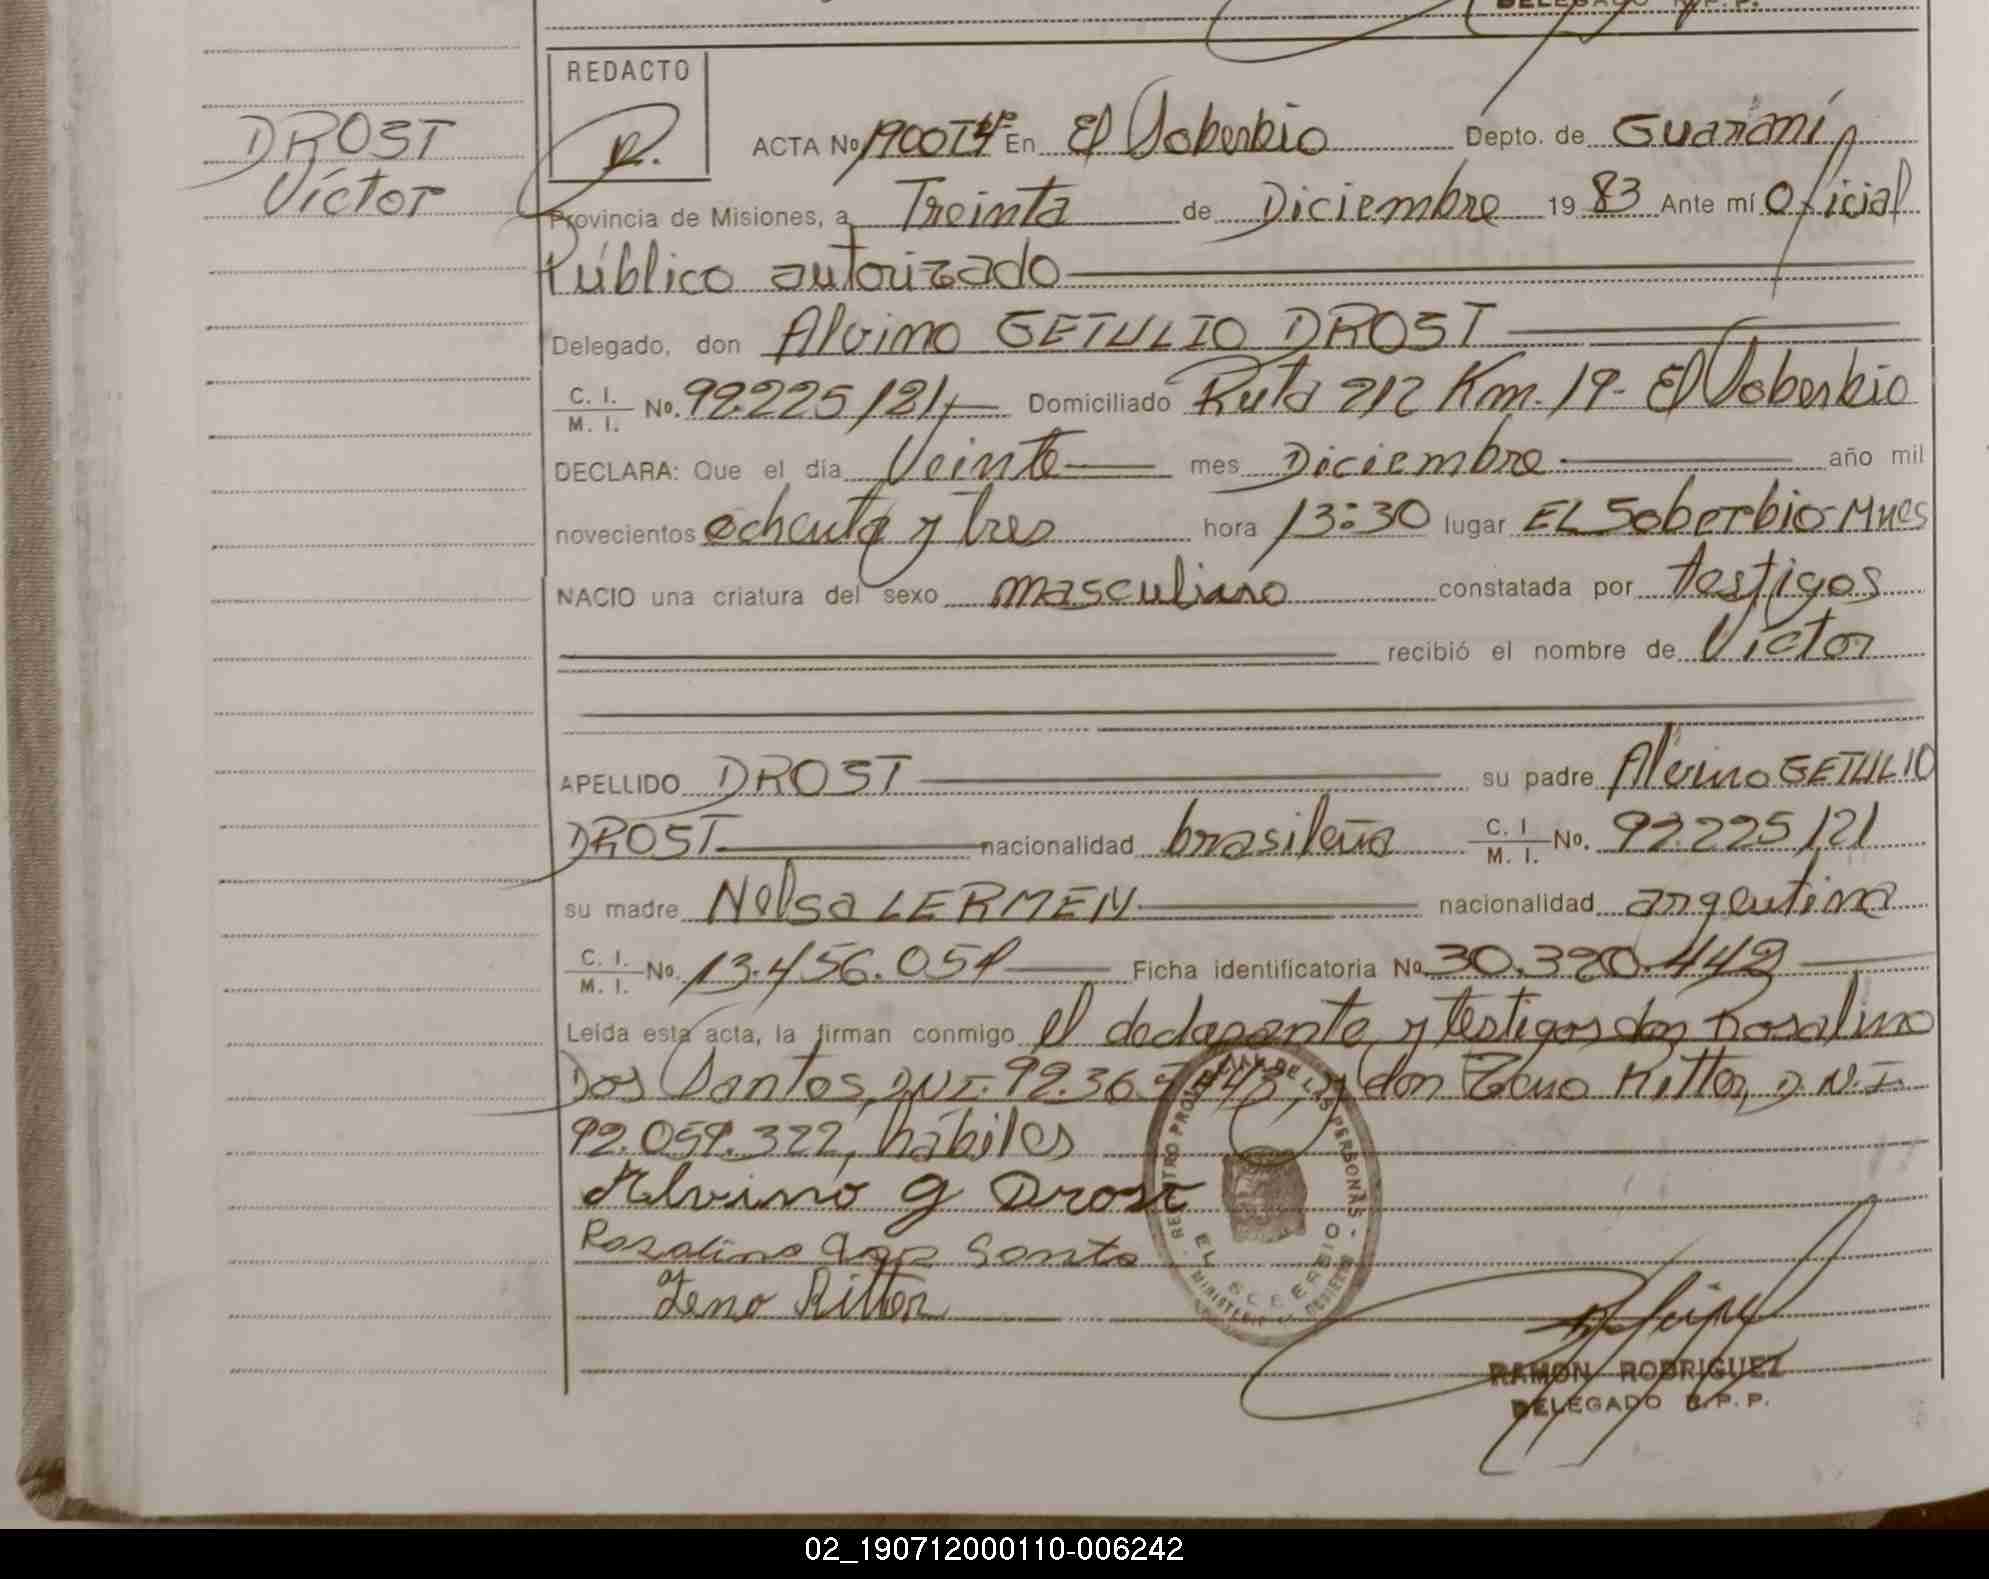 DELEGADO R.P.P.
REDACTO
DROST
Víctor
R.
ACTA No 190 T4º En El Soberbio Depto. de Guaraní
Provincia de Misiones, a Treinta de Diciembre 1983 Ante mí Oficial
Público autorizado
Delegado, don Alvino GETULIO DROST
C. I. M. I. No. 92.225/21,- Domiciliado Ruta 212 Km. 19- El Soberbio
DECLARA: Que el día Veinte mes Diciembre año mil
novecientos ochenta y tres hora 13:30 lugar EL Soberbio-Mnes
NACIO una criatura del sexo masculino constatada por testigos
recibió el nombre de Víctor
APELLIDO DROST su padre Alvino GETULIO
DROST nacionalidad brasileña C. I M. I. No. 92.225/21
su madre Nelsa LERMEN nacionalidad argentina
C. I. M. I. No. 13.456.059 Ficha identificatoria No 30.390.442
Leída esta acta, la firman conmigo el declarante y testigos don Rosalino
Dos Santos, DNI. 92.36 43, y don Zeno Ritter, D.N.I.
92.059.322, hábiles
Alvino g Drost
Rosalino Santo
Zeno Ritter
REGISTRO PROVINCIAL DE LAS PERSONAS
EL SOBERBIO
RAMON RODRIGUEZ
DELEGADO R.P.P.
02_190712000110-006242